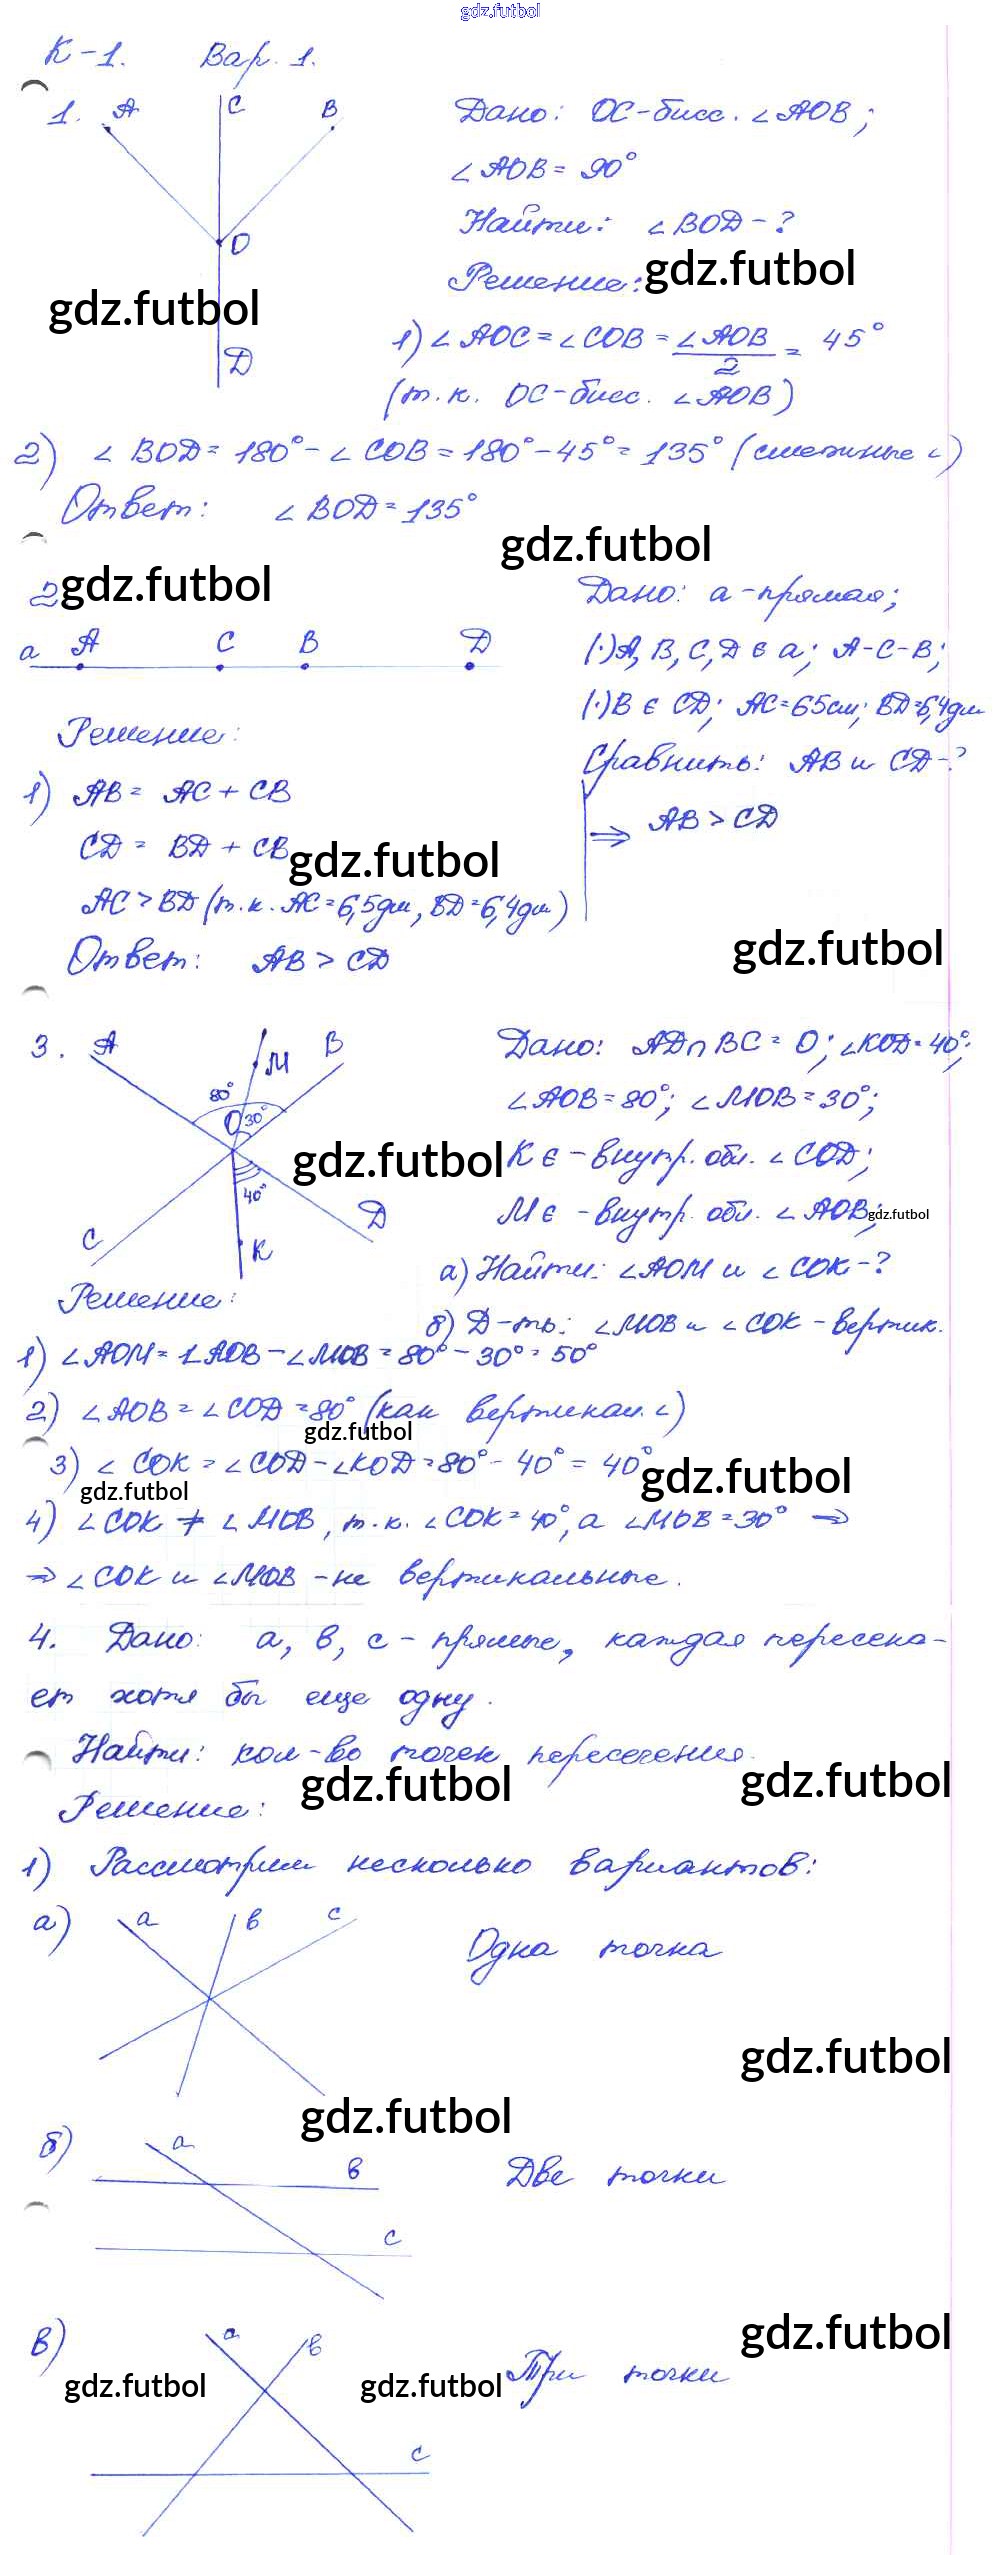 gdz.futbol
К-1. Вар. 1.
1. A C B O D
Дано: OC-бисс. ∠AOB;
∠AOB = 90°
Найти: ∠BOD-?
Решение: gdz.futbol
gdz.futbol
1) ∠AOC = ∠COB = ∠AOB/2 = 45°
(т.к. OC-бисс. ∠AOB)
2) ∠BOD = 180° - ∠COB = 180° - 45° = 135° (смежные ∠)
Ответ: ∠BOD = 135°
gdz.futbol
2 gdz.futbol
a A C B D
Дано: a-прямая;
(·)A, B, C, D ∈ a; A-C-B;
(·)B ∈ CD; AC=65см; BD=6,4дм
Сравнить: AB и CD-?
Решение:
1) AB = AC + CB
CD = BD + CB
gdz.futbol
AC > BD (т.к. AC=6,5дм, BD=6,4дм)
⇒ AB > CD
Ответ: AB > CD
gdz.futbol
3. A M B 80° O 30° 40° C K D
Дано: AD∩BC = O; ∠KOD=40°;
∠AOB=80°; ∠MOB=30°;
gdz.futbol
K ∈ -внутр. обл. ∠COD;
M ∈ -внутр. обл. ∠AOB;
gdz.futbol
а) Найти: ∠AOM и ∠COK-?
б) Д-ть: ∠MOB и ∠COK - вертик.
Решение:
1) ∠AOM = ∠AOB - ∠MOB = 80° - 30° = 50°
2) ∠AOB = ∠COD = 80° (как вертикал. ∠)
gdz.futbol
3) ∠COK = ∠COD - ∠KOD = 80° - 40° = 40°
gdz.futbol
gdz.futbol
4) ∠COK ≠ ∠MOB, т.к. ∠COK = 40°, а ∠MOB = 30° ⇒
⇒ ∠COK и ∠MOB - не вертикальные.
4. Дано: a, b, c - прямые, каждая пересека-
ет хотя бы еще одну.
Найти: кол-во точек пересечения.
gdz.futbol
gdz.futbol
Решение:
1) Рассмотрим несколько вариантов:
а) a b c Одна точка
gdz.futbol
gdz.futbol
б) a b c Две точки
gdz.futbol
в) a b c Три точки
gdz.futbol
gdz.futbol